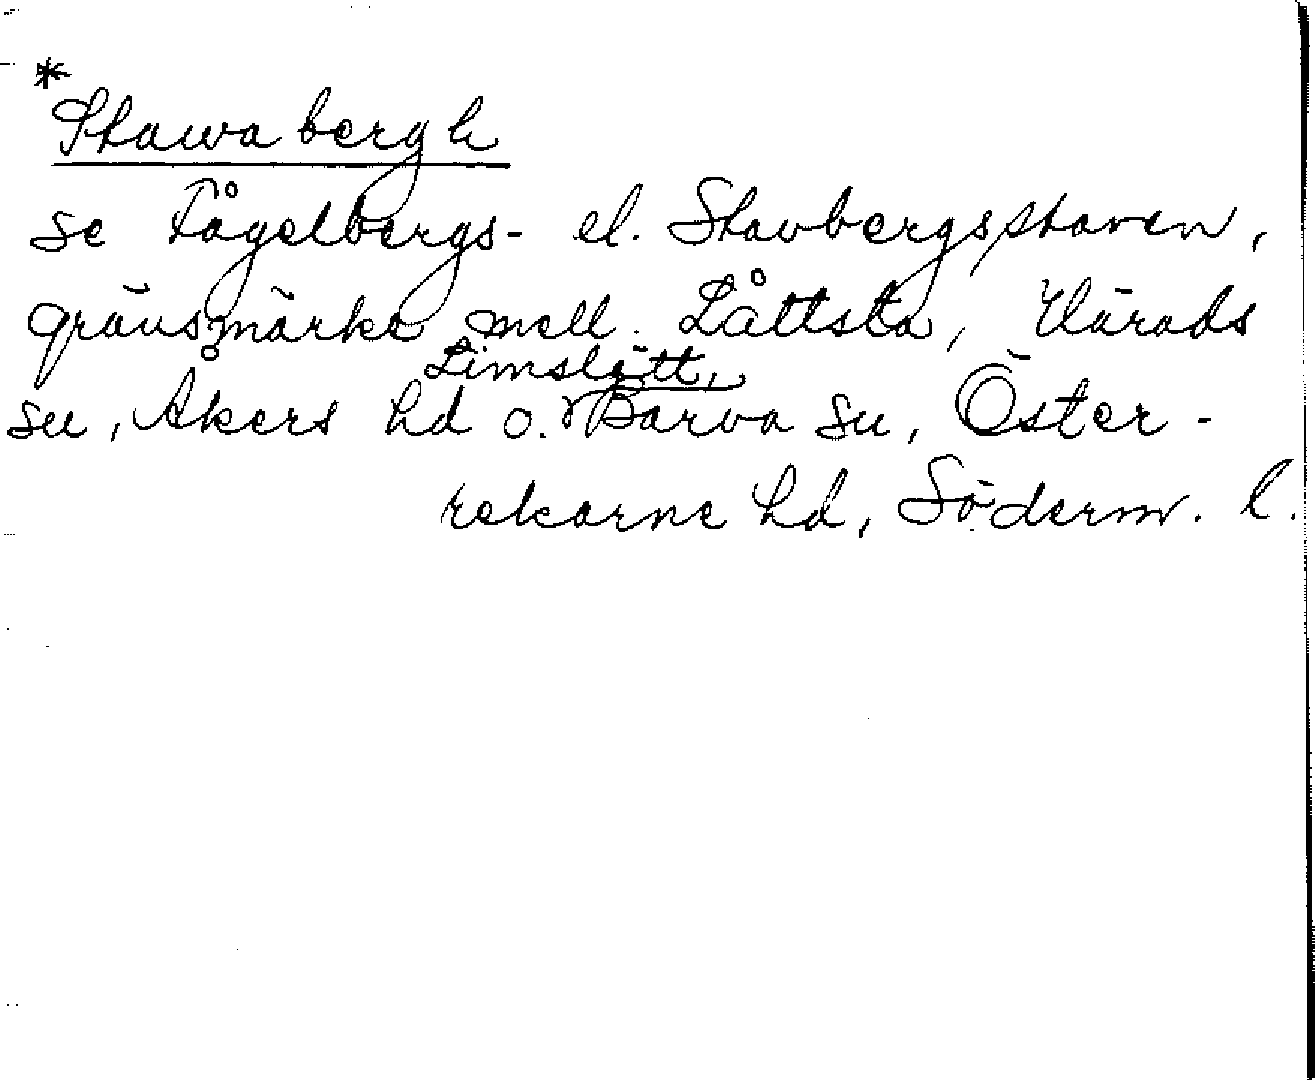 *Stawabergh
se Fågelbergs- el. Stavbergsstaven,
gränsmärke mell. Låttsta, Härads
Limslätt,
sn, Åkers hd o. Barva sn, Öster-
rekarne hd, Söderm. l.